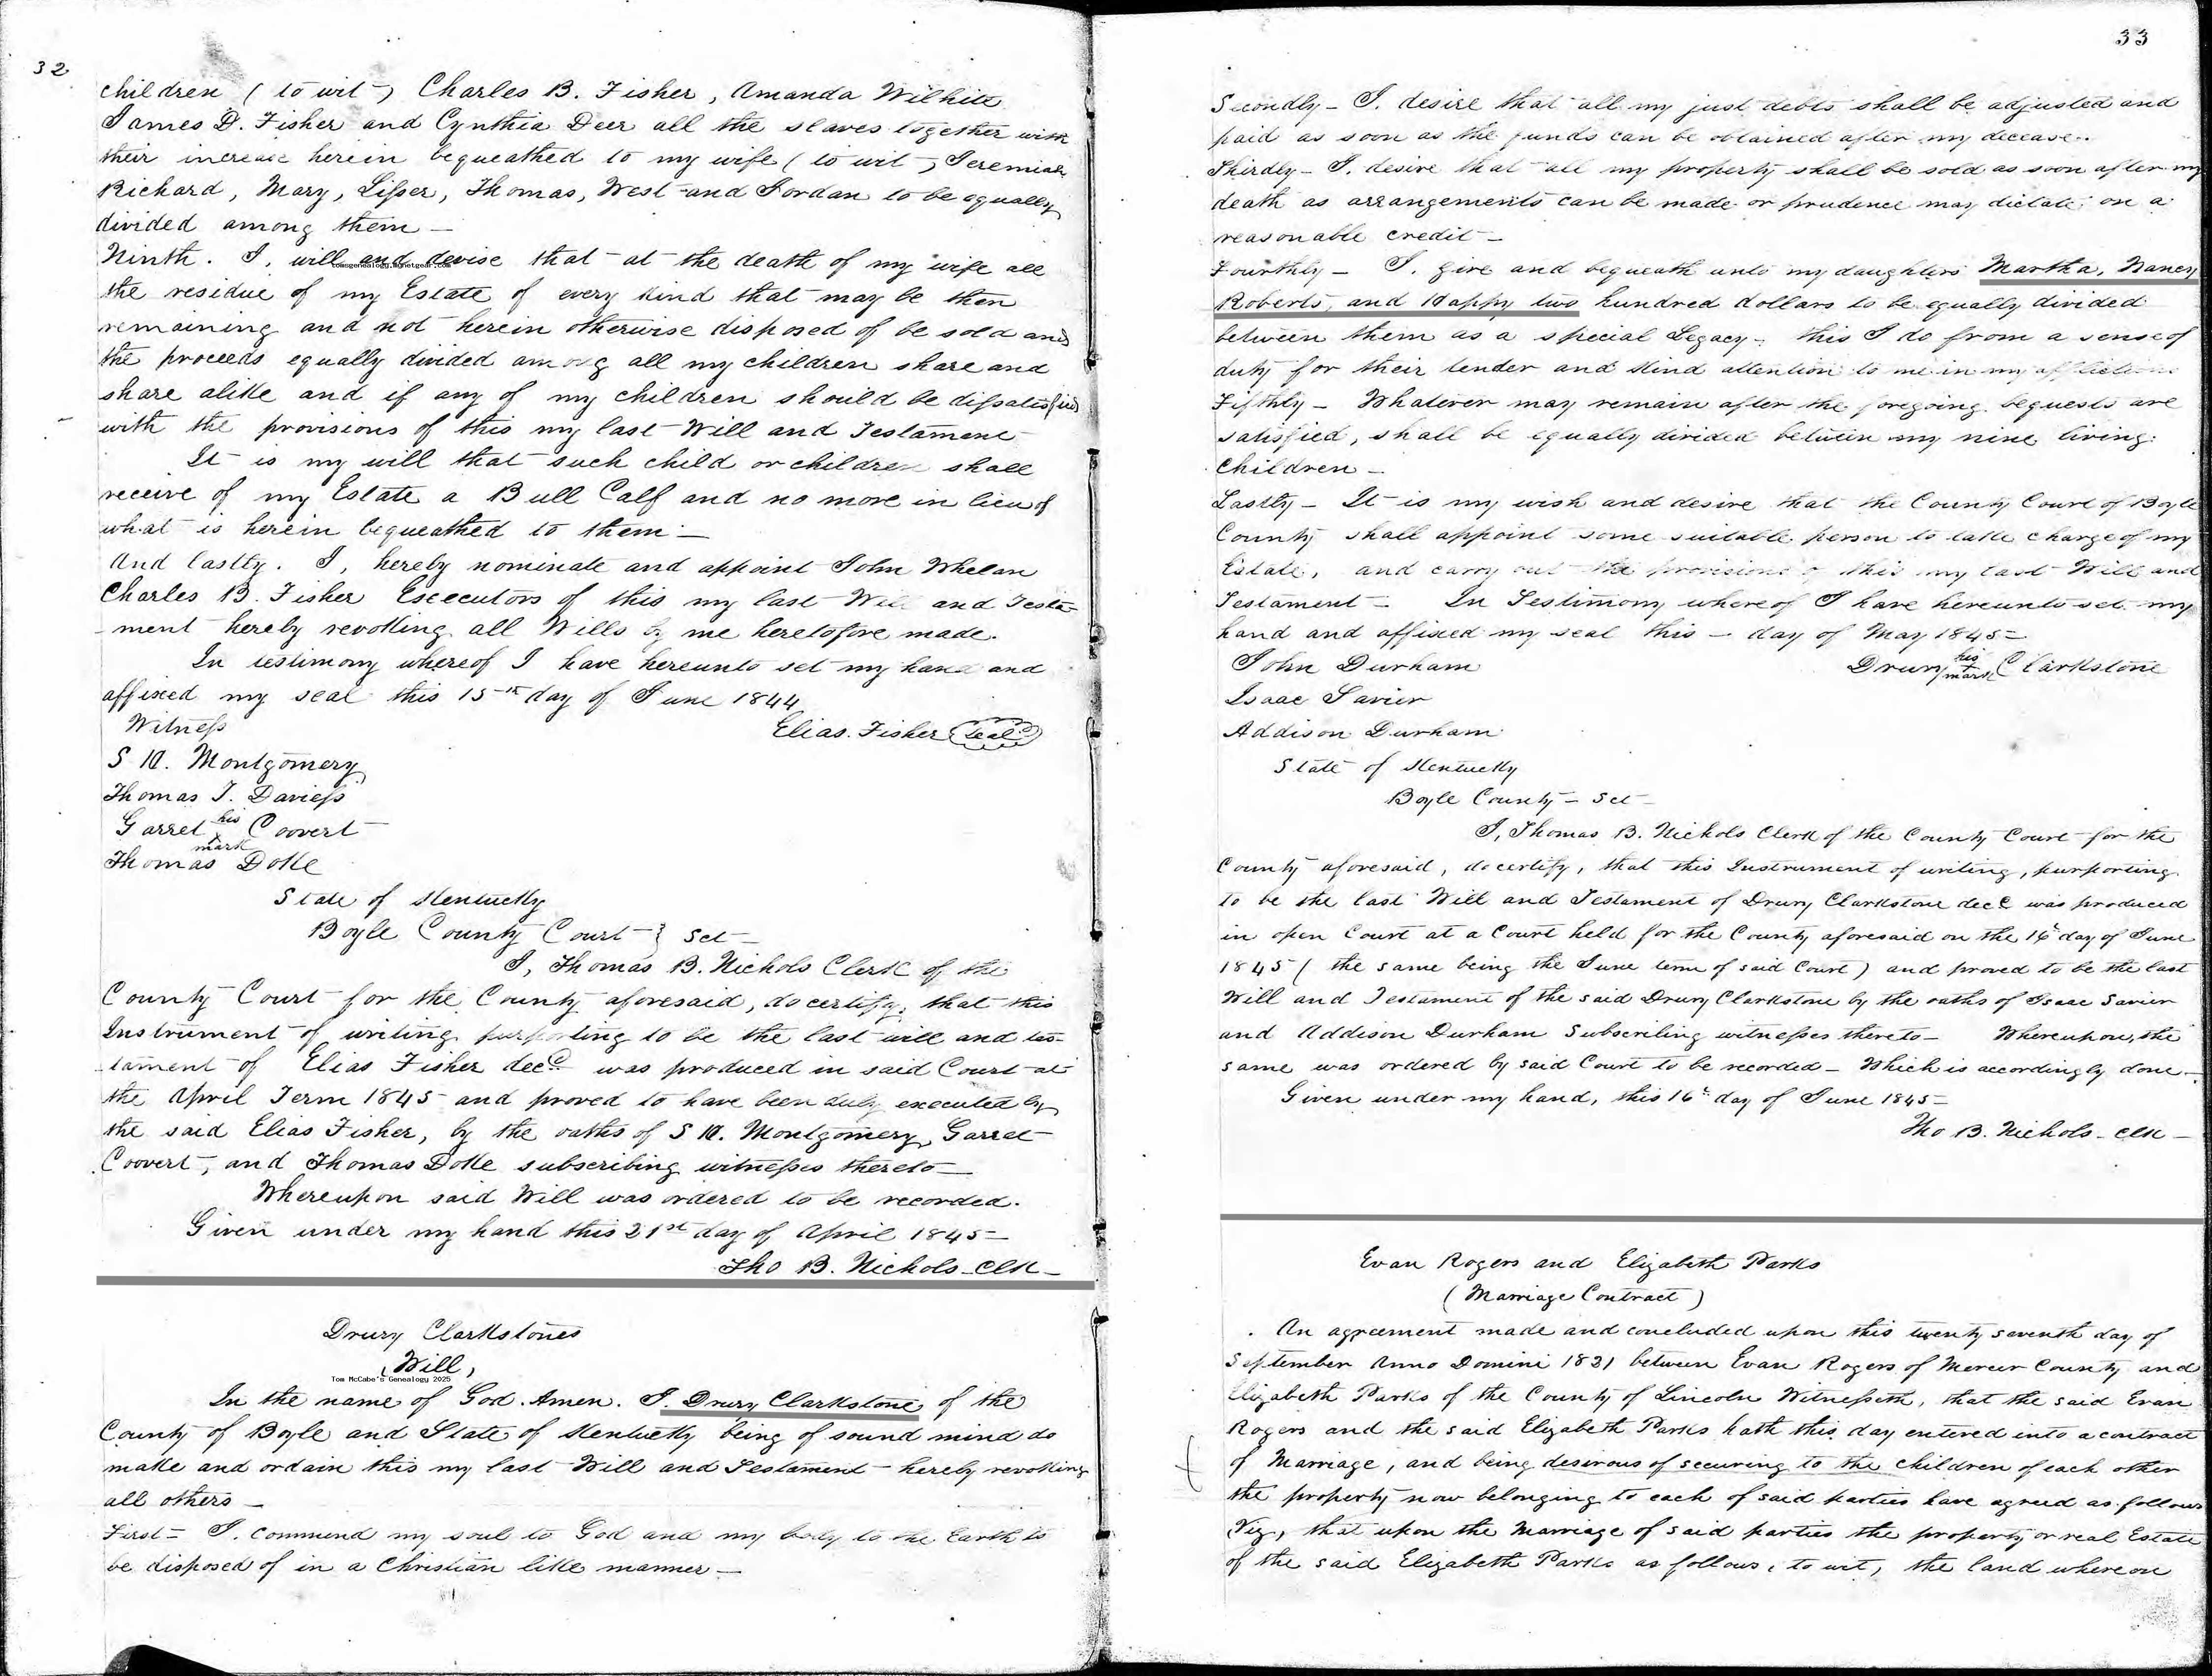 32
children (to wit) Charles B. Fisher, Amanda Wilhite
James D. Fisher and Cynthia Deer all the slaves together with
their increase herein bequeathed to my wife (to wit) Jeremiah
Richard, Mary, Lisser, Thomas, West and Jordan to be equally
divided among them —
Ninth. I, will and devise that at the death of my wife all
tomsgenealogy.mynetgear.com
the residue of my Estate of every kind that may be then
remaining and not herein otherwise disposed of be sold and
the proceeds equally divided among all my children share and
share alike and if any of my children should be dissatisfied
with the provisions of this my last Will and Testament
It is my will that such child or children shall
receive of my Estate a Bull Calf and no more in lieu of
what is herein bequeathed to them —
And lastly. I, hereby nominate and appoint John Whelan
Charles B. Fisher Executors of this my last Will and Testa-
-ment hereby revoking all Wills by me heretofore made.
In testimony whereof I have hereunto set my hand and
affixed my seal this 15th day of June 1844
Witness
Elias. Fisher (Seal)
S K. Montgomery
Thomas T. Daviess
Garret his x mark Coovert
Thomas Doke
State of Kentucky
Boyle County Court } Sct —
I, Thomas B. Nichols Clerk of the
County Court for the County aforesaid, do certify, that this
Instrument of writing purporting to be the last will and tes-
-tament of Elias Fisher decd was produced in said Court at
the April Term 1845 and proved to have been duly executed by
the said Elias Fisher, by the oaths of S K. Montgomery, Garret
Coovert, and Thomas Doke subscribing witnesses thereto —
Whereupon said Will was ordered to be recorded.
Given under my hand this 21st day of April 1845 —
Tho B. Nichols - Clk —
Drury Clarkstones
(Will)
Tom McCabe's Genealogy 2025
In the name of God. Amen. I. Drury Clarkstone of the
County of Boyle and State of Kentucky being of sound mind do
make and ordain this my last Will and Testament — hereby revoking
all others —
First — I. commend my soul to God and my body to the Earth to
be disposed of in a Christian like manner —
33
Secondly — I. desire that all my just debts shall be adjusted and
paid as soon as the funds can be obtained after my decease.
Thirdly — I. desire that all my property shall be sold as soon after my
death as arrangements can be made or prudence may dictate, on a
reasonable credit —
Fourthly — I. give and bequeath unto my daughters Martha, Nancy
Roberts, and Happy two hundred dollars to be equally divided
between them as a special Legacy — this I do from a sense of
duty for their tender and kind attention to me in my afflictions
Fifthly — Whatever may remain after the foregoing bequests are
satisfied, shall be equally divided between my nine living
Children —
Lastly — It is my wish and desire that the County Court of Boyle
County shall appoint some suitable person to take charge of my
Estate, and carry out the provisions of this my last Will and
Testament — In Testimony whereof I have hereunto set my
hand and affixed my seal this — day of May 1845 —
John Durham
Drury his + mark Clarkstone
Isaac Savier
Addison Durham
State of Kentucky
Boyle County — Sct —
I, Thomas B. Nichols Clerk of the County Court for the
County aforesaid, do certify, that this Instrument of writing, purporting
to be the last Will and Testament of Drury Clarkstone decd was produced
in open Court at a Court held for the County aforesaid on the 16t day of June
1845 (the same being the June term of said Court) and proved to be the last
Will and Testament of the said Drury Clarkstone by the oaths of Isaac Savier
and Addison Durham Subscribing witnesses thereto — Whereupon, the
same was ordered by said Court to be recorded — Which is accordingly done —
Given under my hand, this 16t day of June 1845 —
Tho B. Nichols - Clk —
Evan Rogers and Elizabeth Parks
(Marriage Contract)
An agreement made and concluded upon this twenty seventh day of
September Anno Domini 1821 between Evan Rogers of Mercer County and
Elizabeth Parks of the County of Lincoln Witnesseth, that the said Evan
Rogers and the said Elizabeth Parks hath this day entered into a contract
of Marriage, and being desirous of securing to the children of each other
the property now belonging to each of said parties have agreed as follows
(Viz, that upon the Marriage of said parties the property or real Estate
of the said Elizabeth Parks as follows, to wit, the land whereon